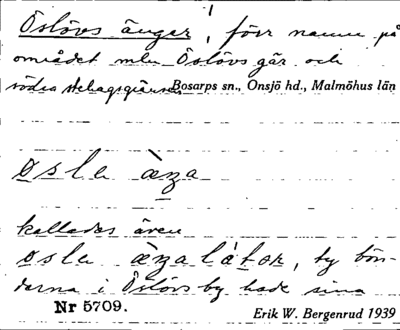 Öslövs ängar, förr namn på
området mln Öslövs går och
södra
Bosarps sn., Onsjö hd., Malmöhus län
øslu àza
kallades även
øslu àzalátor, ty bön-
derna i Öslövs by hade sina
Nr 5709.
Erik W. Bergenrud 1939